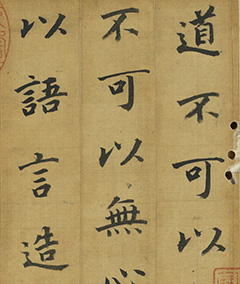 道不可以
不可以無心
以語言造